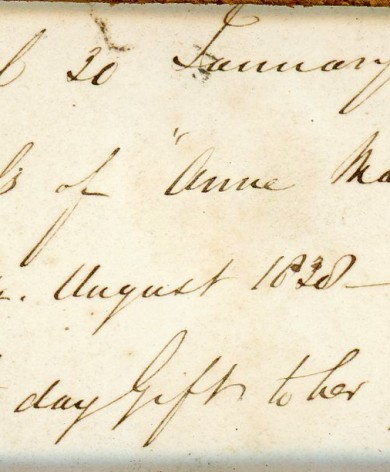 30 January
of "Anne Ma
August 1838 —
day Gift to her